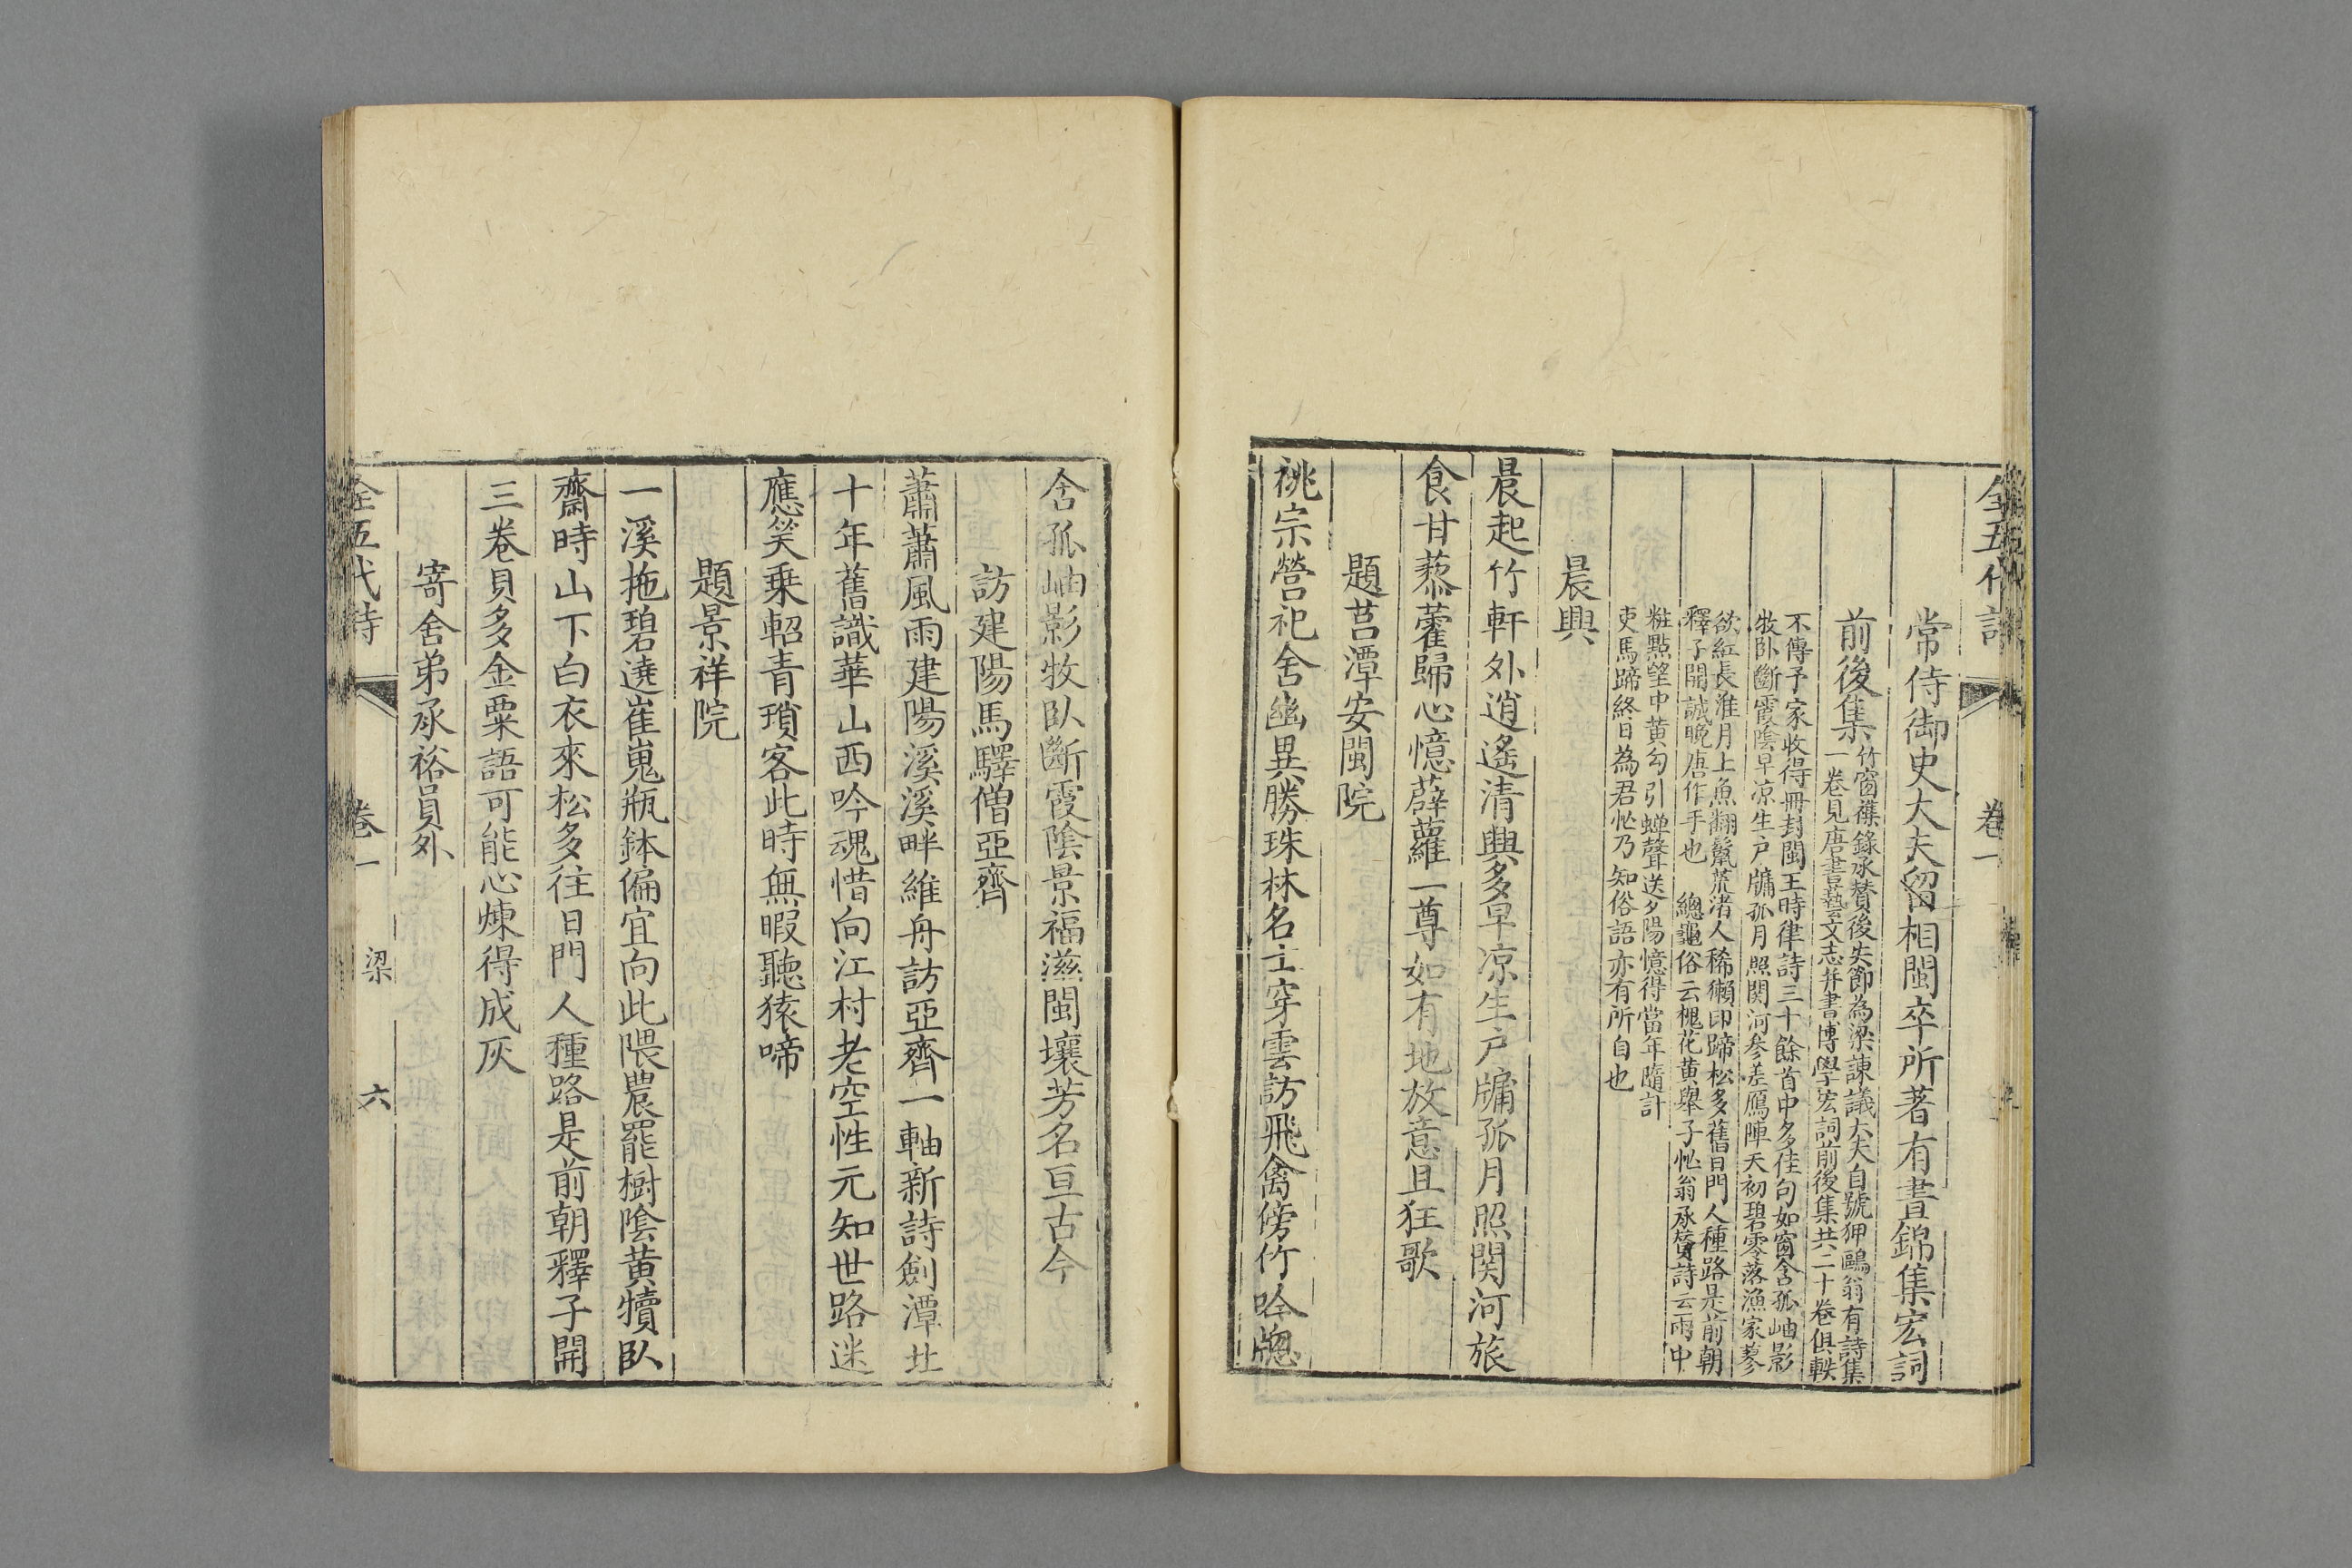 全五代詩 卷一
常侍御史大夫留相閩卒所著有晝錦集宏詞
前後集
竹窗襍錄承贊後失節為梁諌議大夫自號狎鷗翁有詩集
一卷見唐書藝文志并書博學宏詞前後集共二十卷俱軼
不傳予家收得冊封閩王時律詩三十餘首中多佳句如窗含孤岫影
牧卧斷霞陰早凉生戶牖孤月照関河參差鴈陣天初碧零落漁家蓼
欲紅長淮月上魚翻鬣荒渚人稀獺印蹄松多舊日門人種路是前朝
釋子開誠晚唐作手也 總龜俗云槐花黄舉子忙翁承贊詩云雨中
粧點望中黄勾引蟬聲送夕陽憶得當年隨計
吏馬蹄終日為君忙乃知俗語亦有所自也
晨興
晨起竹軒外逍遙清興多早凉生戶牖孤月照関河旅
食甘藜藿歸心憶薜蘿一尊如有地放意且狂歌
題莒潭安閩院
祧宗營祀舍幽異勝珠林名士穿雲訪飛禽傍竹吟窻
含孤岫影牧臥斷霞陰景福滋閩壤芳名亘古今
訪建陽馬驛僧亞齊
蕭蕭風雨建陽溪溪畔維舟訪亞齊一軸新詩劍潭北
十年舊識華山西吟魂惜向江村老空性元知世路迷
應笑乗軺青瑣客此時無暇聽猿啼
題景祥院
一溪拖碧遶崔嵬瓶鉢偏宜向此隈農罷樹陰黄犢臥
齋時山下白衣來松多往日門人種路是前朝釋子開
三卷貝多金粟語可能心煉得成灰
寄舍弟承裕員外
全五代詩 卷一 梁 六